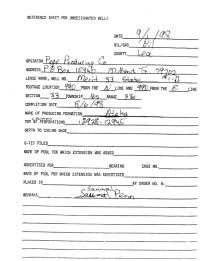 REFERENCE SHEET FOR UNDESIGNATED WELLS
DATE 9/1/98
OIL/GAS
COUNTY Lea
OPERATOR Page Producing Co
ADDRESS P O Box 10365 Midland Tx 79702
LEASE NAME, WELL NO. 33 State
FOOTAGE LOCATION 990 FROM THE N LINE AND 990 FROM THE E LINE
SECTION 33 TOWNSHIP RANGE 33e
COMPLETION DATE 8/6/98
NAME OF PRODUCING FORMATION Atoka
TOP OF PERFORATIONS
DEPTH TO CASING SHOE
C-123 FILED
NAME OF POOL FOR WHICH EXTENSION WAS ASKED
ADVERTISED FOR HEARING CASE NO.
NAME OF POOL FOR WHICH EXTENSION WAS ADVERTISED
PLACED IN BY ORDER NO. R-
REMARKS Sanmal
Sanmal Penn